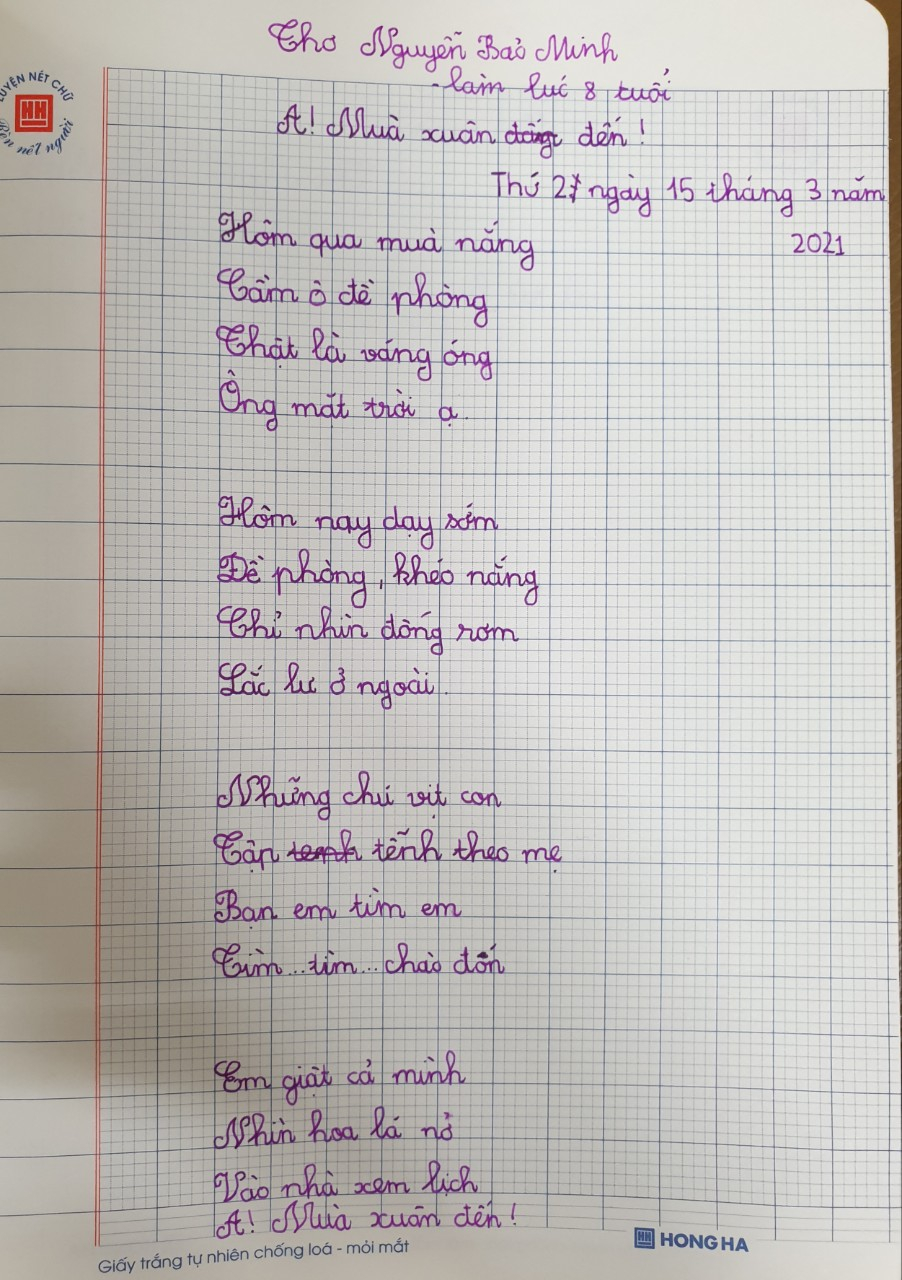 Thơ Nguyễn Bảo Minh
- làm lúc 8 tuổi
LUYỆN NÉT CHỮ
Rèn nết người
A! Mùa xuân đang đến!
Thứ 2, ngày 15 tháng 3 năm
2021
Hôm qua mùa nắng
Cầm ô đề phòng
Thật là váng óng
Ông mắt trời ạ.
Hôm nay dạy sớm
Đề phòng, khéo nắng
Chỉ nhìn đống rơm
Lắc lư ở ngoài.
Những chú vịt con
Cặp tễnh theo mẹ
Bạn em tìm em
Tìm...tìm...chào đón
Em giật cả mình
Nhìn hoa lá nở
Vào nhà xem lịch
A! Mùa xuân đến!
Giấy trắng tự nhiên chống loá - mỏi mắt
HH HONG HA